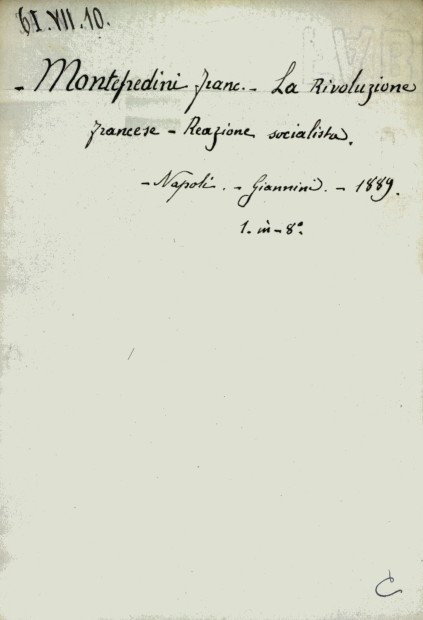 61.VII.10.
- Montefredini franc. - La Rivoluzione
francese - Reazione socialista.
- Napoli. - Giannini. - 1889.
1. in - 8º.
C